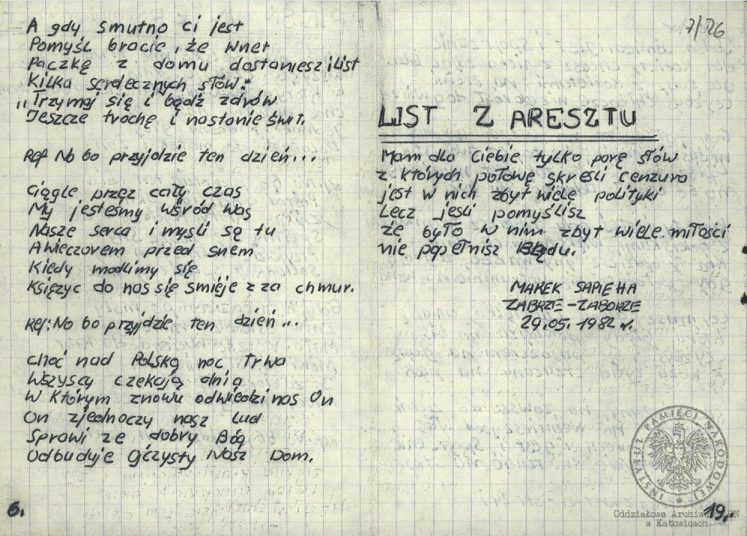 A gdy smutno ci jest
Pomyśl bracie, że wnet
Paczkę z domu dostaniesz i list
Kilka serdecznych słów:
„Trzymaj się i bądź zdrów
Jeszcze trochę i nastanie świt.
Ref No bo przyjdzie ten dzień...
Ciągle przez cały czas
My jesteśmy wśród Was
Nasze serca i myśli są tu
A wieczorem przed snem
Kiedy modlimy się
Księżyc do nas się śmieje z za chmur.
Ref: No bo przyjdzie ten dzień...
Choć nad Polską noc trwa
Wszyscy czekają dnia
W którym znowu odwiedzi nas On
On zjednoczy nasz lud
Sprawi że dobry Bóg
Odbuduje Ojczysty Nasz Dom.
6.
17/26
LIST Z ARESZTU
Mam dla Ciebie tylko parę słów
z których połowę skreśli cenzura
jest w nich zbyt wiele polityki
Lecz jeśli pomyślisz
że było w nim zbyt wiele miłości
nie popełnisz Błędu.
MAREK SAPIEHA
ZABRZE-ZABORZE
29.05.1982 r.
INSTYTUT PAMIĘCI NARODOWEJ
Oddziałowe Archiwum IPN
w Katowicach
19.